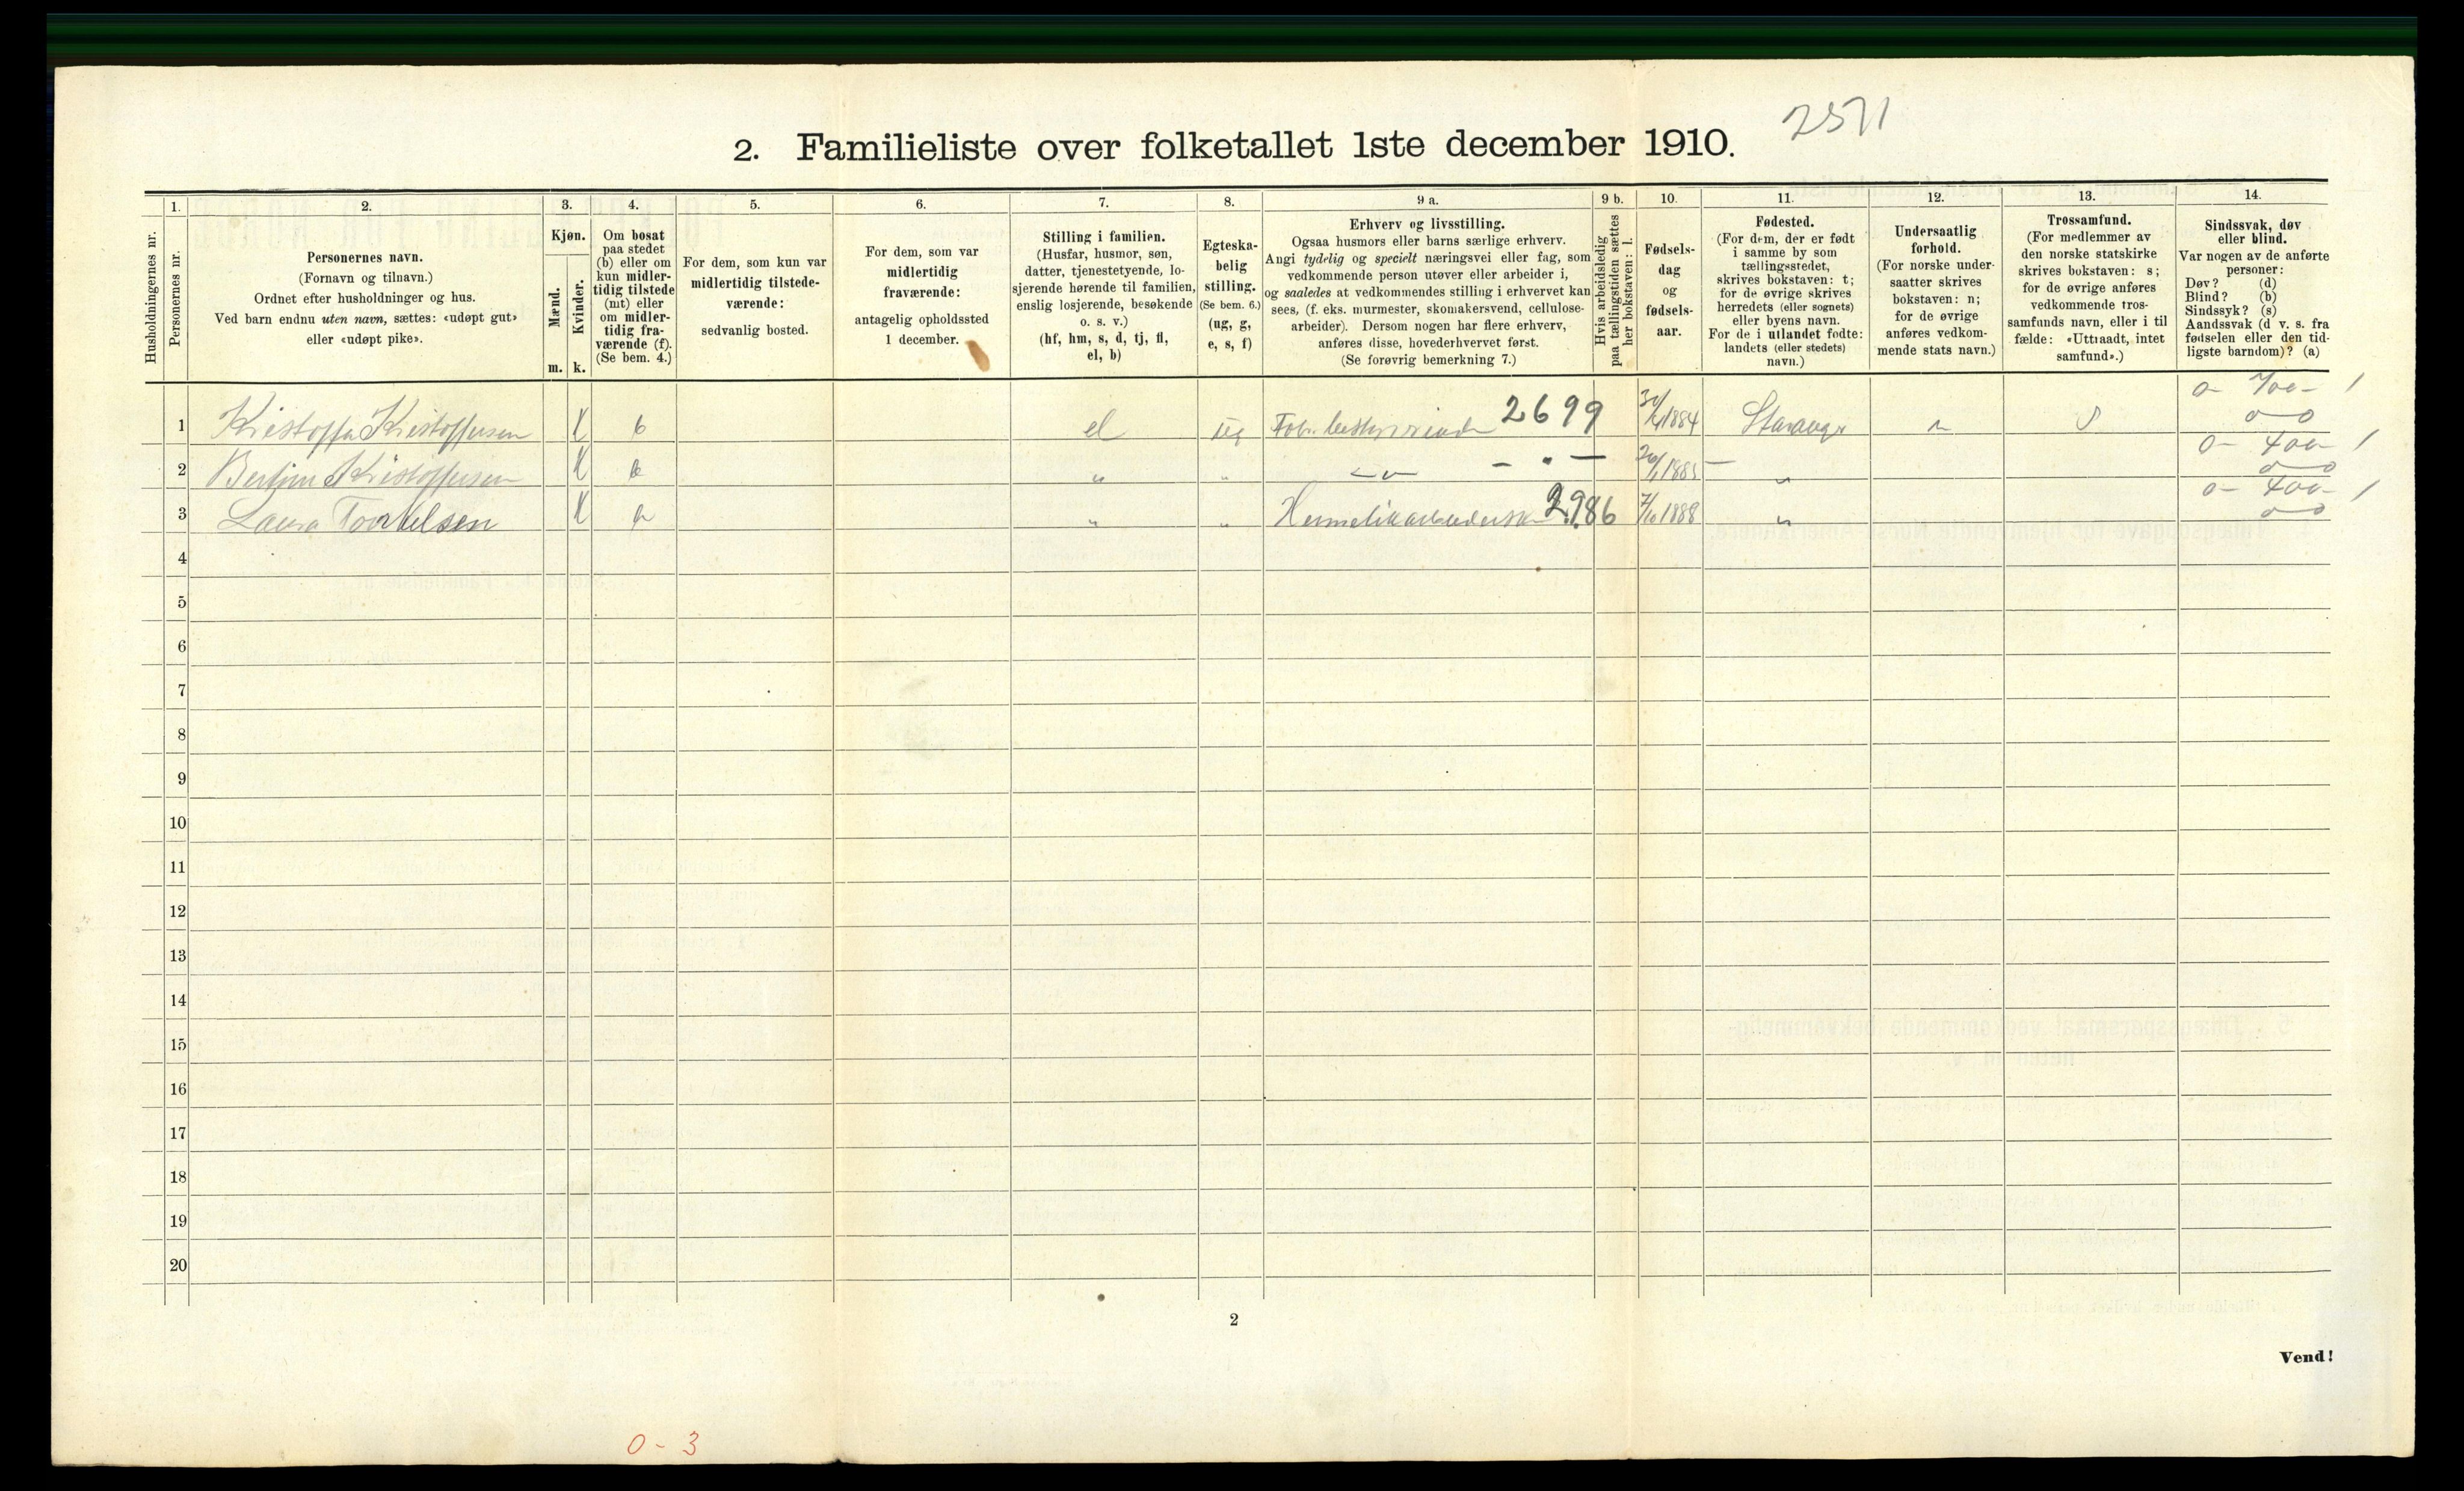 2571
2. Familieliste over folketallet 1ste december 1910.
Husholdningernes nr.
1. Personernes nr.
2. Personernes navn.
(Fornavn og tilnavn.)
Ordnet efter husholdninger og hus.
Ved barn endnu uten navn, sættes: «udøpt gut»
eller «udøpt pike».
3. Kjøn.
Mænd. Kvinder.
m. k.
4. Om bosat
paa stedet
(b) eller om
kun midler-
tidig tilstede
(mt) eller
om midler-
tidig fra-
værende (f).
(Se bem. 4.)
5. For dem, som kun var
midlertidig tilstede-
værende:
sedvanlig bosted.
6. For dem, som var
midlertidig
fraværende:
antagelig opholdssted
1 december.
7. Stilling i familien.
(Husfar, husmor, søn,
datter, tjenestetyende, lo-
sjerende hørende til familien,
enslig losjerende, besøkende
o. s. v.)
(hf, hm, s, d, tj, fl,
el, b)
8. Egteska-
belig
stilling.
(Se bem. 6.)
(ug, g,
e, s, f)
9 a. Erhverv og livsstilling.
Ogsaa husmors eller barns særlige erhverv.
Angi tydelig og specielt næringsvei eller fag, som
vedkommende person utøver eller arbeider i,
og saaledes at vedkommendes stilling i erhvervet kan
sees, (f. eks. murmester, skomakersvend, cellulose-
arbeider). Dersom nogen har flere erhverv,
anføres disse, hovederhvervet først.
(Se forøvrig bemerkning 7.)
9 b. Hvis arbeidsledig
paa tællingstiden sættes
her bokstaven: l.
10. Fødsels-
dag
og
fødsels-
aar.
11. Fødested.
(For dem, der er født
i samme by som
tællingsstedet,
skrives bokstaven: t;
for de øvrige skrives
herredets (eller sognets)
eller byens navn.
For de i utlandet fødte:
landets (eller stedets)
navn.)
12. Undersaatlig
forhold.
(For norske under-
saatter skrives
bokstaven: n;
for de øvrige
anføres vedkom-
mende stats navn.)
13. Trossamfund.
(For medlemmer av
den norske statskirke
skrives bokstaven: s;
for de øvrige anføres
vedkommende tros-
samfunds navn, eller i til
fælde: «Uttraadt, intet
samfund».)
14. Sindssvak, døv
eller blind.
Var nogen av de anførte
personer:
Døv? (d)
Blind? (b)
Sindssyk? (s)
Aandssvak (d v. s. fra
fødselen eller den tid-
ligste barndom)? (a)
1 Kristoffa Kristoffersen k b el ug 2699 1884 Stavanger n s
0 - 400 - 1
0 0
2 Kristoffersen k b " " - " - 1885 "
0 - 400 - 1
0 0
3 Laura Toorkelsen k b " " 2986 7/10 1888 "
0 - 400 - 1
0 0
4
5
6
7
8
9
10
11
12
13
14
15
16
17
18
19
20
2
Vend!
0 - 3